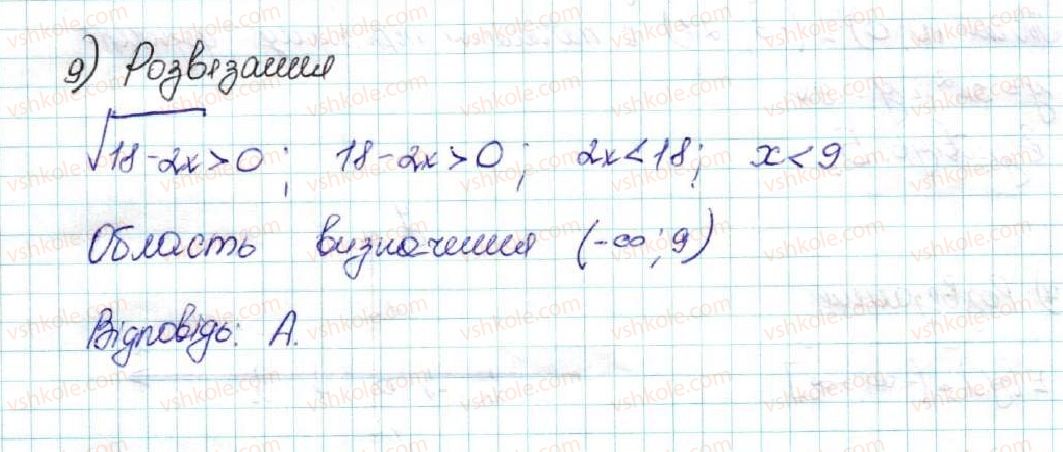 9) Розв'язання
√18-2x>0; 18-2x>0; 2x<18; x<9
Область визначення (-∞;9)
Відповідь: А.